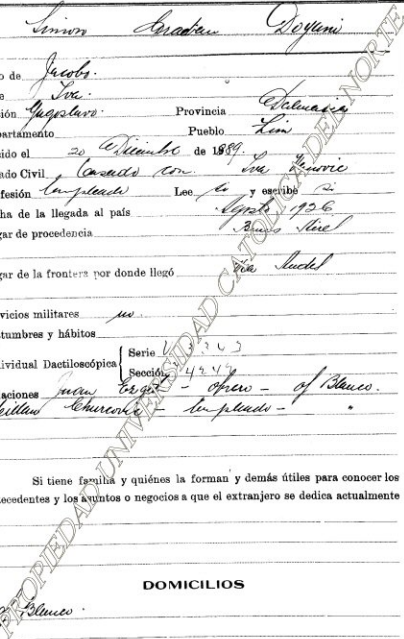 Simon Gradien Doyuni
o de Jacobo.
e Iva.
ión Yugoslavo. Provincia Dalmasia
partamento Pueblo Lim
ido el 20 Diciembre de 1889.
ado Civil Casado con Iva
fesión Empleado Lee si y escribe si
ha de la llegada al país Agosto 1926
gar de procedencia Buenos Aires
gar de la frontera por donde llegó Vía Andes
vicios militares no.
tumbres y hábitos
dividual Dactiloscópica { Serie
Sección 4242
aciones Juan - opero - of Blanco.
- Empleado - "
Si tiene familia y quiénes la forman y demás útiles para conocer los
tecedentes y los asuntos o negocios a que el extranjero se dedica actualmente
DOMICILIOS
Blanco.
PROPIEDAD UNIVERSIDAD CATOLICA DEL NORTE